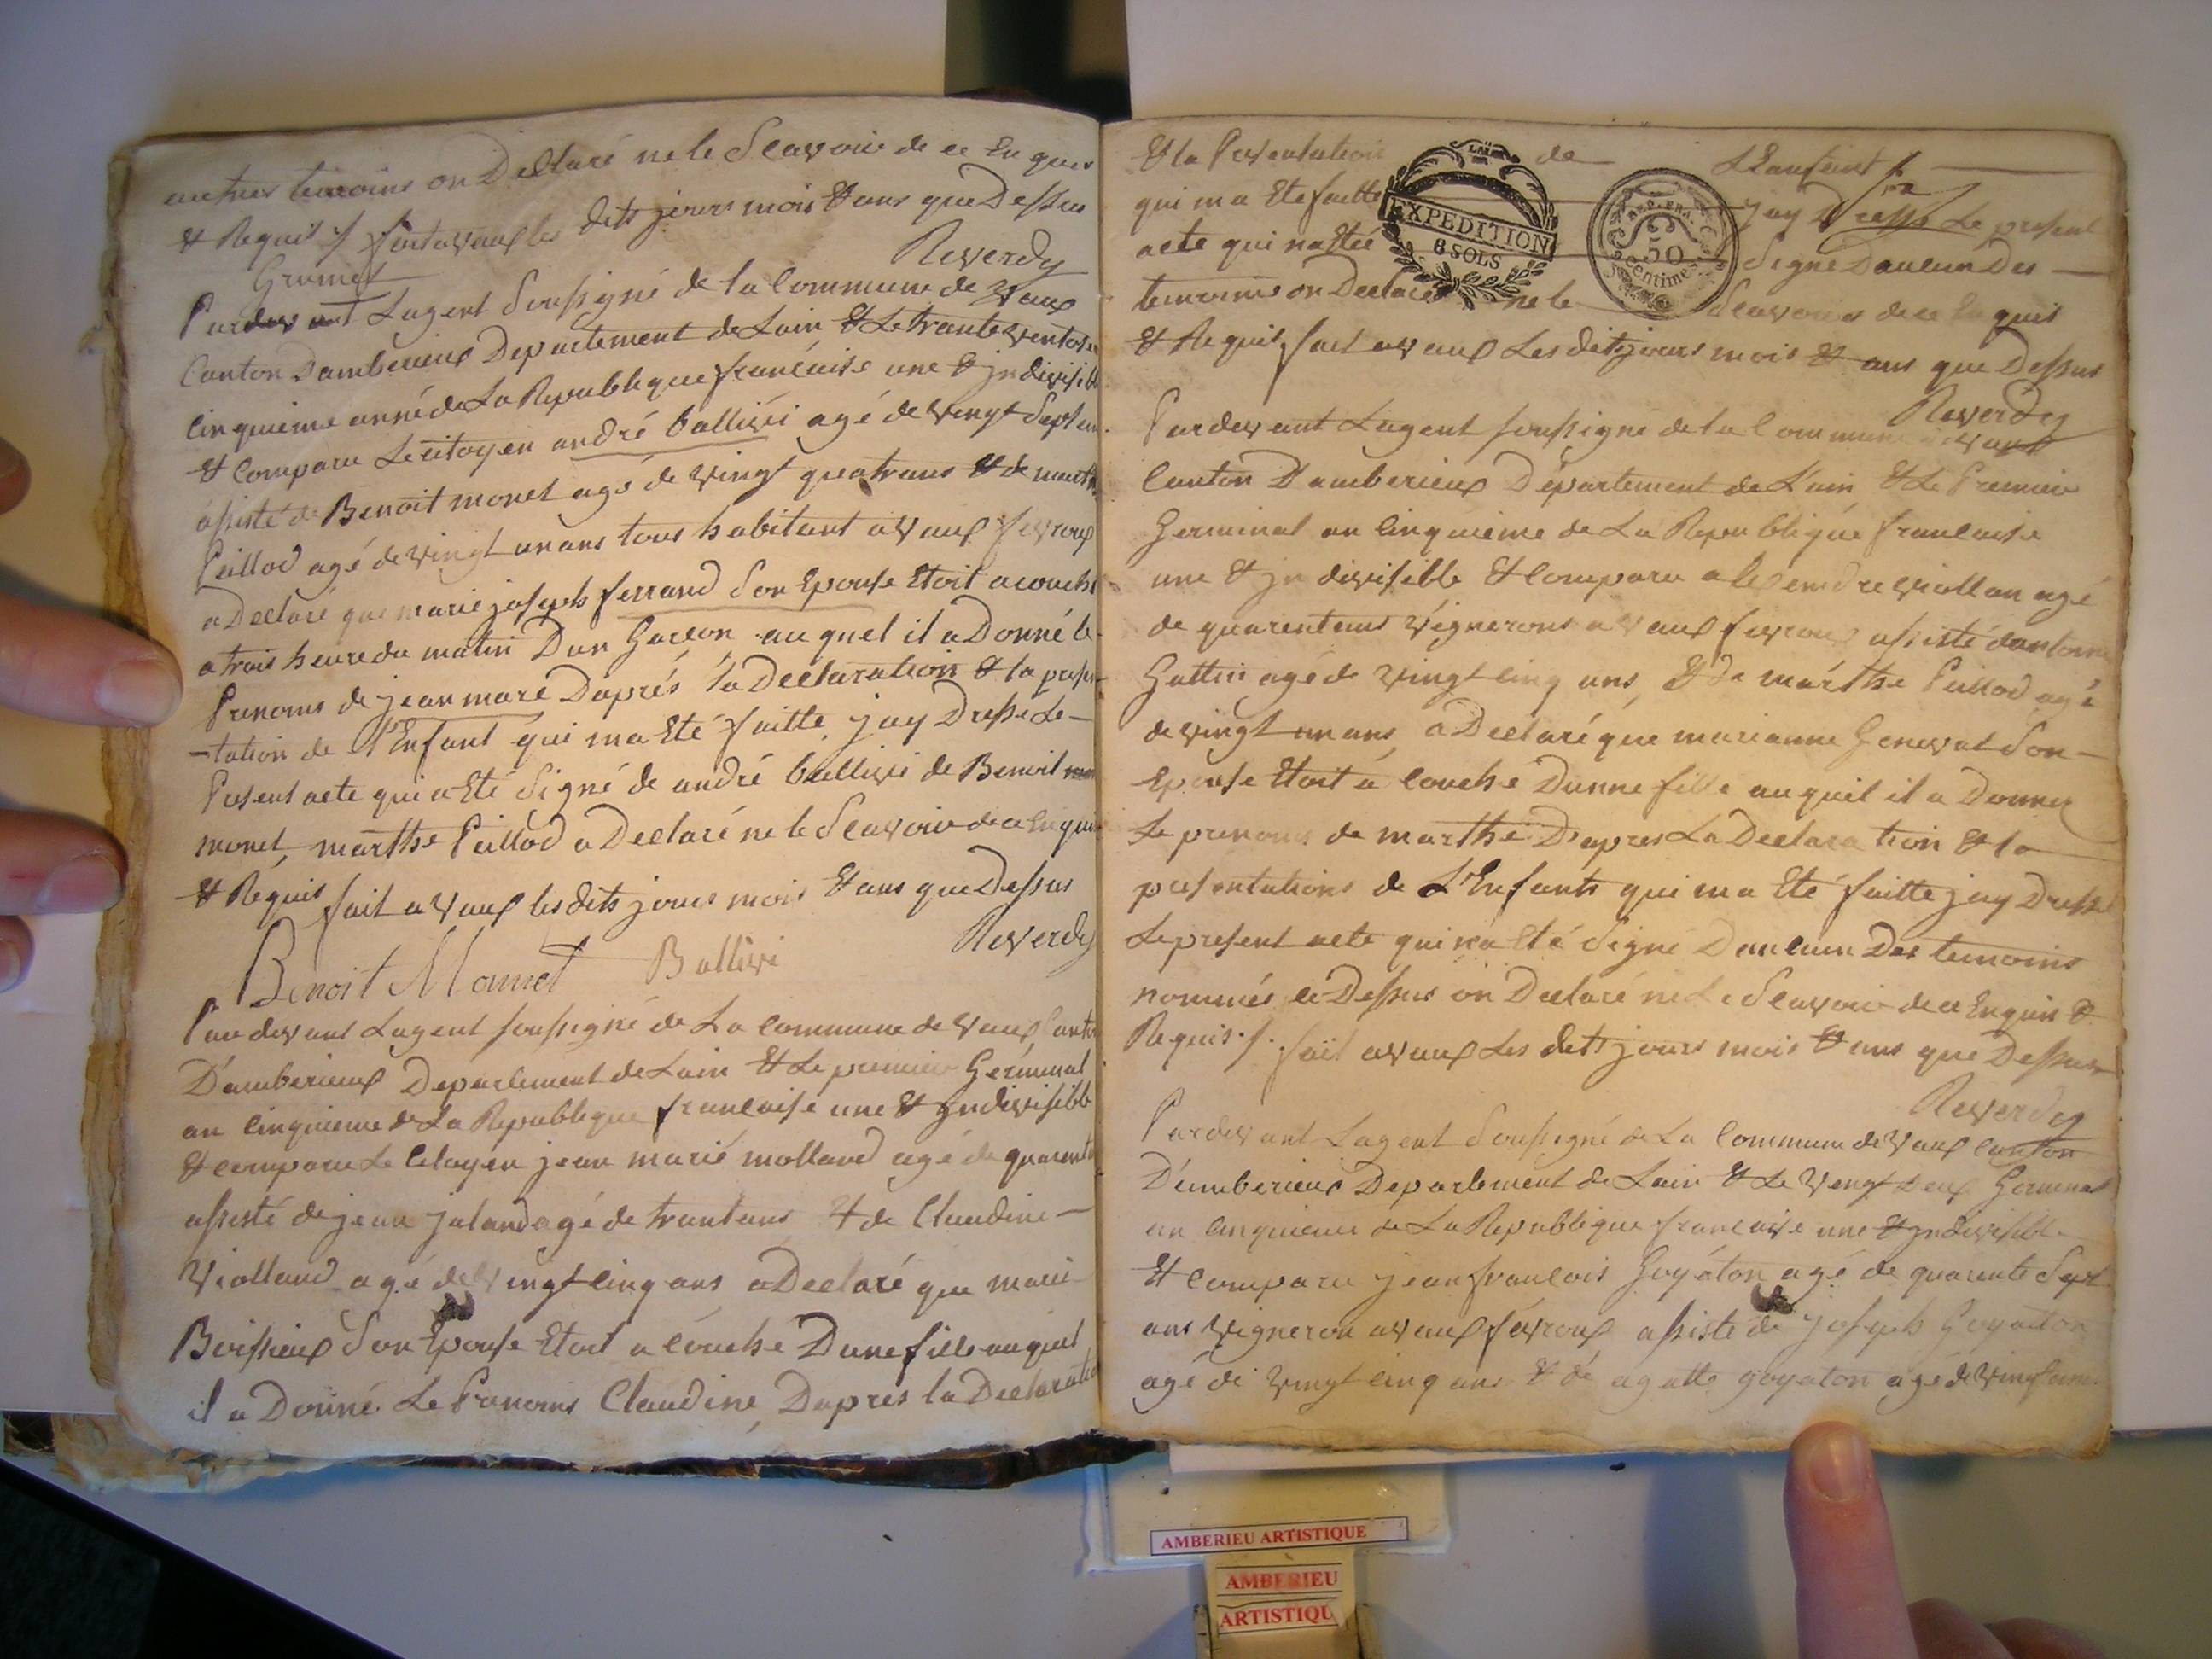 autres temoins on Declaré ne le Scavoir de ce Enquis
& Requis / fait a vaux les dits jours mois & ans que Dessus
Grumet Reverdy
Pardevant Lagent Soussigné de la Commune de Vaux
Canton Damberieux Departement de Lain & Le trante ventose
cinquieme anné de La Republique francaise une & jndivisible
& Comparu Le citoyen andré ballivei agé de vingt Sept ans
assisté de Benoit monet agé de vingt quatrans & de marthe
Peillod agé de vingt un ans tous habitant a vaux fevroux
a Declaré que marie joseph ferrand Son Epouse Etoit acouché
a trois heure du matin Dun Garcon auquel il a Donné le
Prenoms de jean marc Daprés la Declaration & la presen
-tation de l'Enfant qui ma Eté faitte, jay Dressé Le
Present acte qui a Eté Signé de andré ballivei de Benoit
monet, marthe Peillod a Declaré ne le Scavoir de ce Enquis
& Requis fait a vaux les dits jours mois & ans que Dessus
Reverdy
Benoit Monet Ballivi
Par devant Lagent soussigné de La commune de vaux Canton
D'amberieux Departement de Lain & Le premier Germinal
an cinquieme de La Republique francaise une & jndivisible
& comparu Le Citoyen jean marié molland agé de quarente
assisté de jean jaland agé de trantans & de Claudine
Violland agé de vingt cinq ans a Declaré que marie
Boissieux Son Epouse Etoit a couché Dune fille auquel
il a Donné Le Prenoms Claudine, Daprés la Declaration
& la Presentation de LEanfant
qui ma Ete faitte jay Dressé Le present
acte qui na Eté Signé Daucun Des
temoins on Declaré ne le Scavoir de ce Enquis
& Requis, fait a vaux Les dits jours mois & ans que Dessus
EXPEDITION
8 SOLS
REP. FRA.
50
centimes
Reverdy
Pardevant Lagent soussigné de la Commune de vaux
Canton D'amberieux Département de L'ain & Le Premier
Germinal an Cinquieme de La Republique francaise
une & jndivisible & Comparu alexendre violland agé
de quarentans vignerons a vaux fevroux assisté dantoine
Guttin agé de vingt cinq ans, & de marthe Peillod agé
de vingt un ans, a Declaré que marianne Genevat Son
Epouse Etoit a Couché Dunne fille auquel il a Donner
Le prenoms de marthe D'apres La Declaration & la
presentations de L'Enfants qui ma Eté faitte jay Dressé
Le present acte qui na Eté Signé Daucun Des temoins
nommés ce Dessus on Declaré ne Le Scavoir de ce Enquis &
Requis / fait a vaux Les dits jours mois & ans que Dessus
Reverdy
Pardevant Lagent Soussigné de La Commune de Vaux Canton
D'amberieux Departement de Lain & Le vingt Deux Germinal
an cinquieme de La Republique francaise une & jndivisible
& Comparu jean francois Goyaton agé de quarente Sept
ans vigneron a vaux févroux assisté de joseph Goyaton
agé de vingt cinq ans & de agatte goyaton agé de vingt
AMBERIEU ARTISTIQUE
AMBERIEU
ARTISTIQU